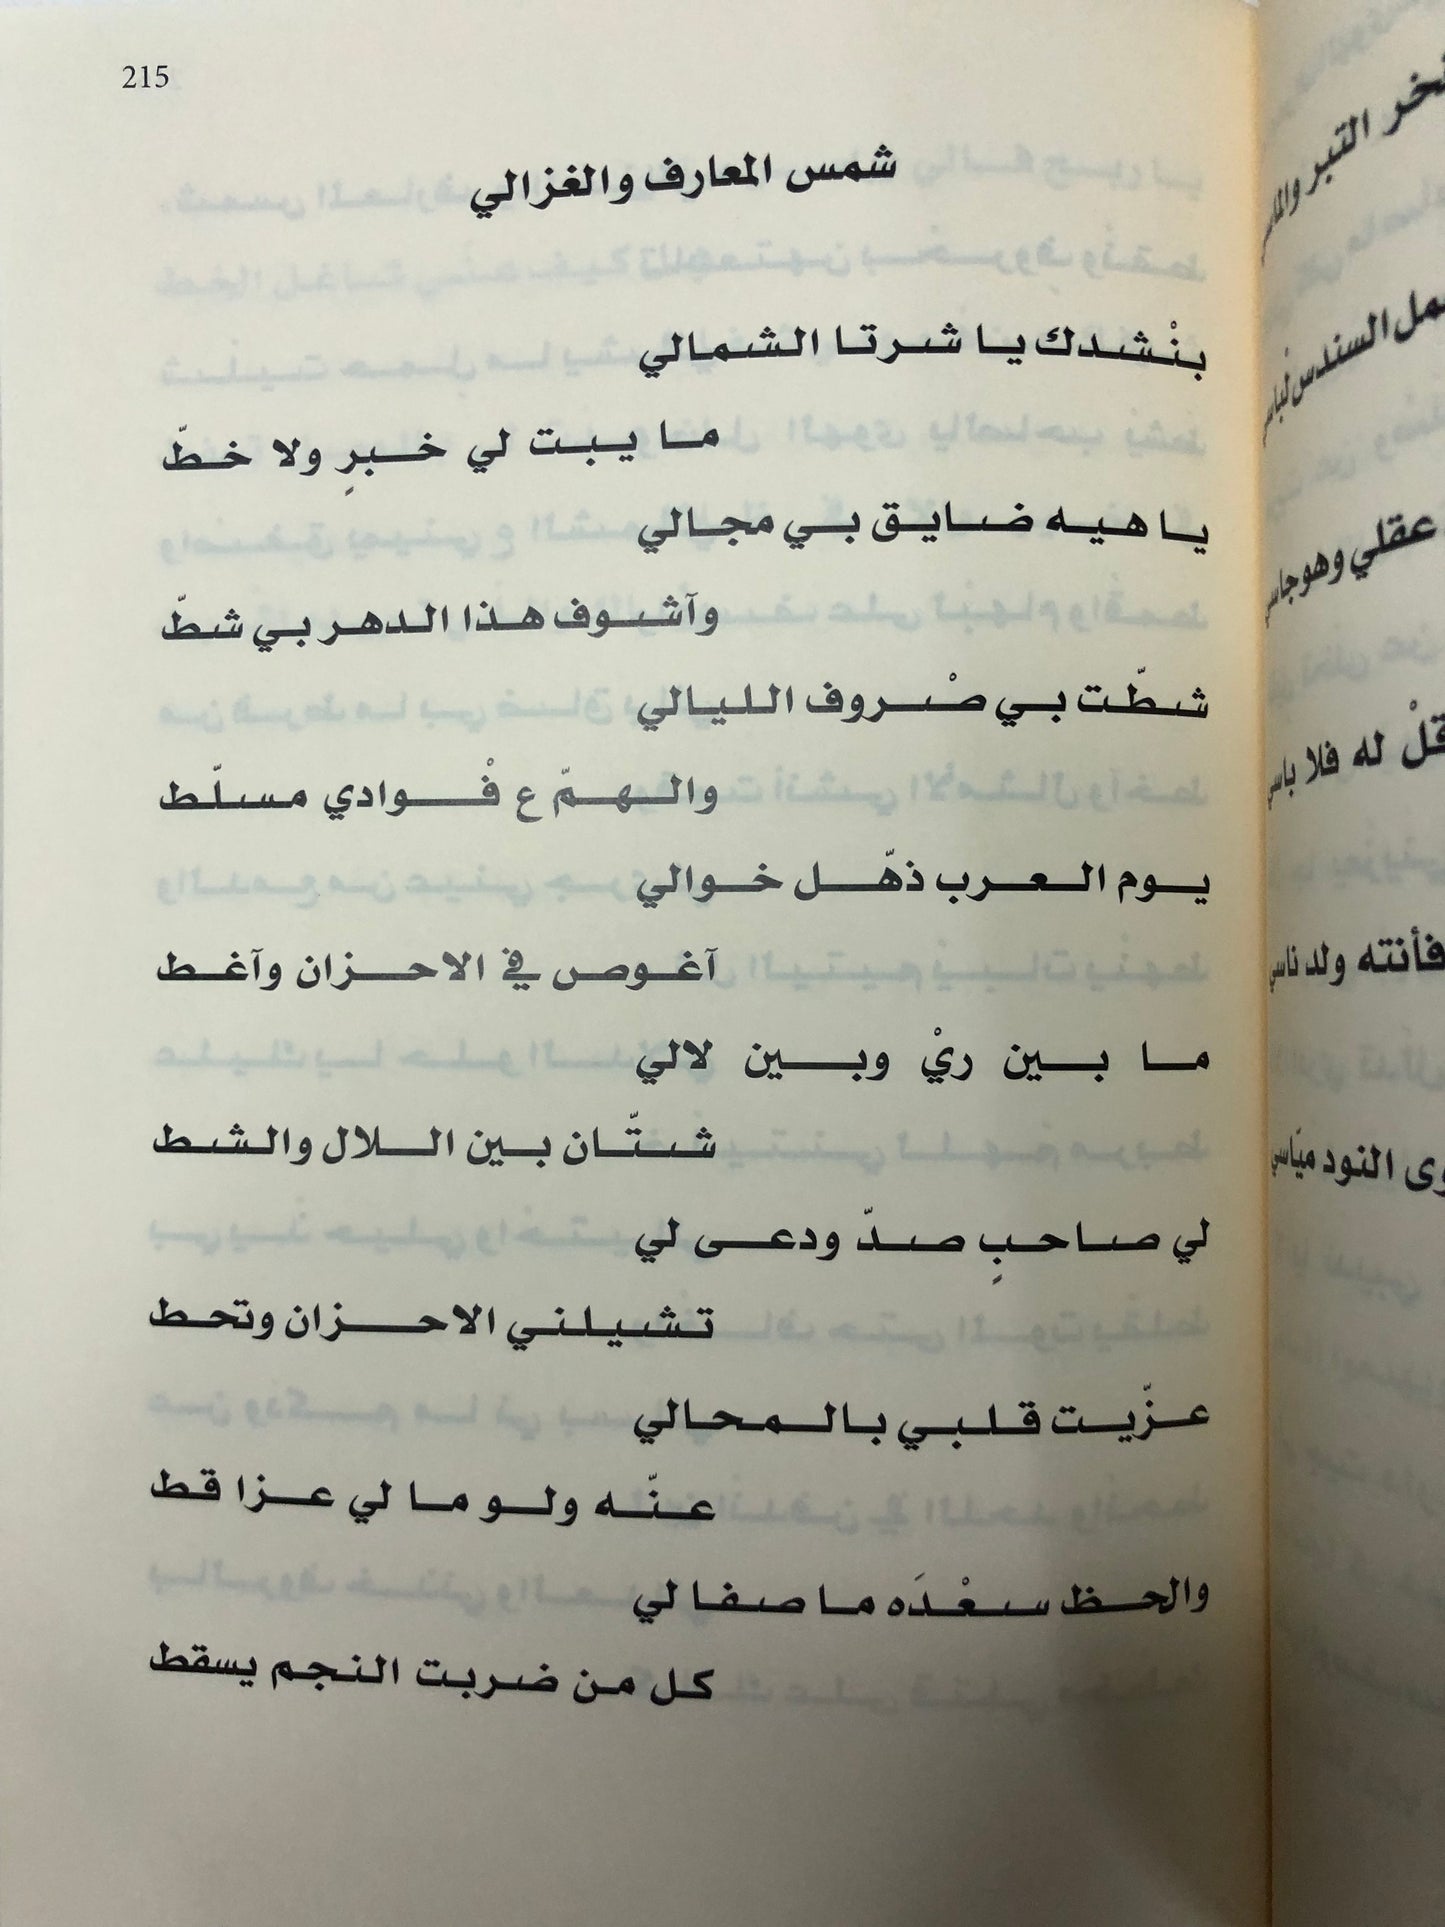 215
شمس المعارف والغزالي
بنْشدك يا شرتا الشمالي
ما يبت لي خبرٍ ولا خطّ
يا هيه ضايق بي مجالي
وآشوف هذا الدهر بي شطّ
شطّت بي صْروف الليالي
والهمّ ع فْوادي مسلّط
يوم العرب ذهّل خوالي
آغوص في الاحزان وآغط
ما بين ريْ وبين لالي
شتّان بين اللال والشط
لي صاحبٍ صدّ ودعى لي
تشيلني الاحزان وتحط
عزّيت قلبي بالمحالي
عنّه ولو ما لي عزا قط
والحظ سعْدَه ما صفا لي
كل من ضربت النجم يسقط
عقلي وهوجاسي
قلْ له فلا باسي
فأنته ولد ناسي
النود ميّاسي